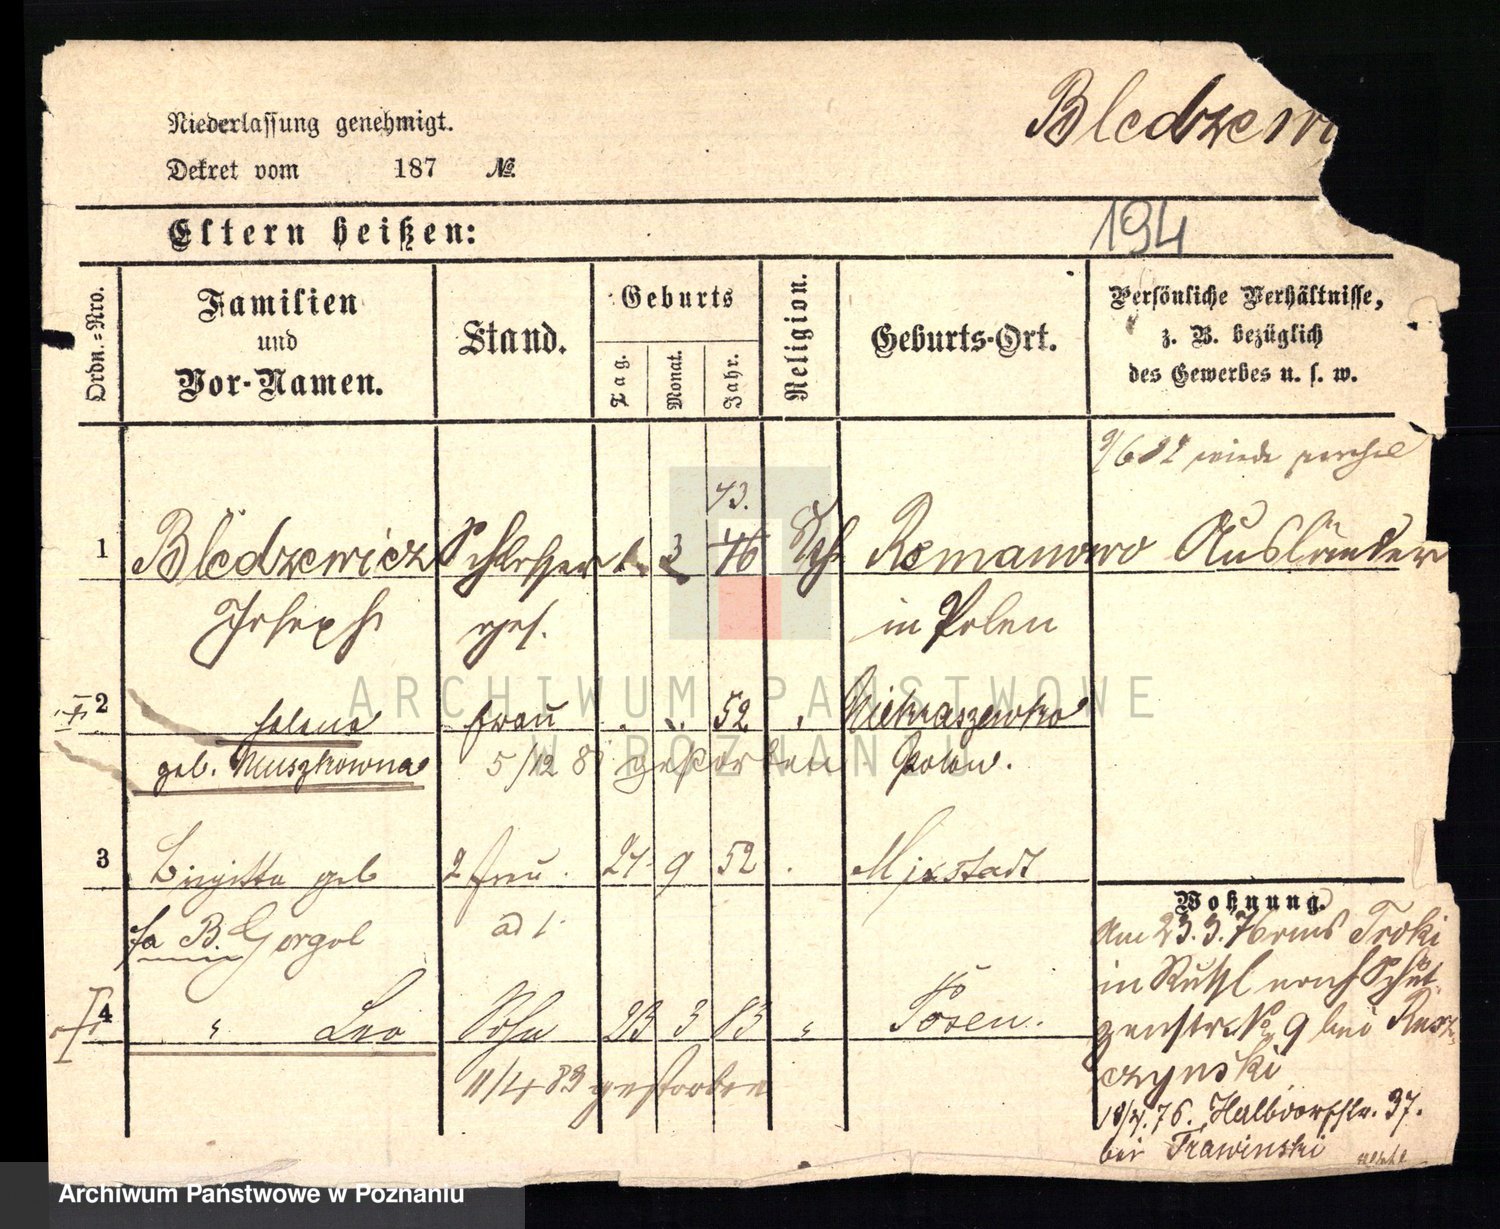 Bledzew
Niederlassung genehmigt.
Dekret vom 187 №.
194
Eltern heißen:
Ordn.=Nro.
Familien und Vor-Namen.
Stand.
Geburts
Tag.
Monat.
Jahr.
Religion.
Geburts-Ort.
Persönliche Verhältnisse,
z. B. bezüglich
des Gewerbes u. s. w.
43.
1 Bledzewicz Schlosser 3 46 Romanowo Ausländer
Joseph ges. in Polen
2 Helena Frau 52
geb. Muszkowna 5/12 8 gestorben Polen.
3 Brigitta geb 2 Frau 27 9 52 Mixstadt
B. Gorgol ad 1
4 " Leo Sohn 23 3 83 " Posen.
11/4 83 gestorben
Wohnung.
Am 23.3.76 aus Troki
in Russl nach Schüt-
zenstr. No 9 bei Rusz-
czynski
18/4.76. Halbdorfstr. 37.
bei Trawinski
ARCHIWUM PAŃSTWOWE
W POZNANIU
Archiwum Państwowe w Poznaniu